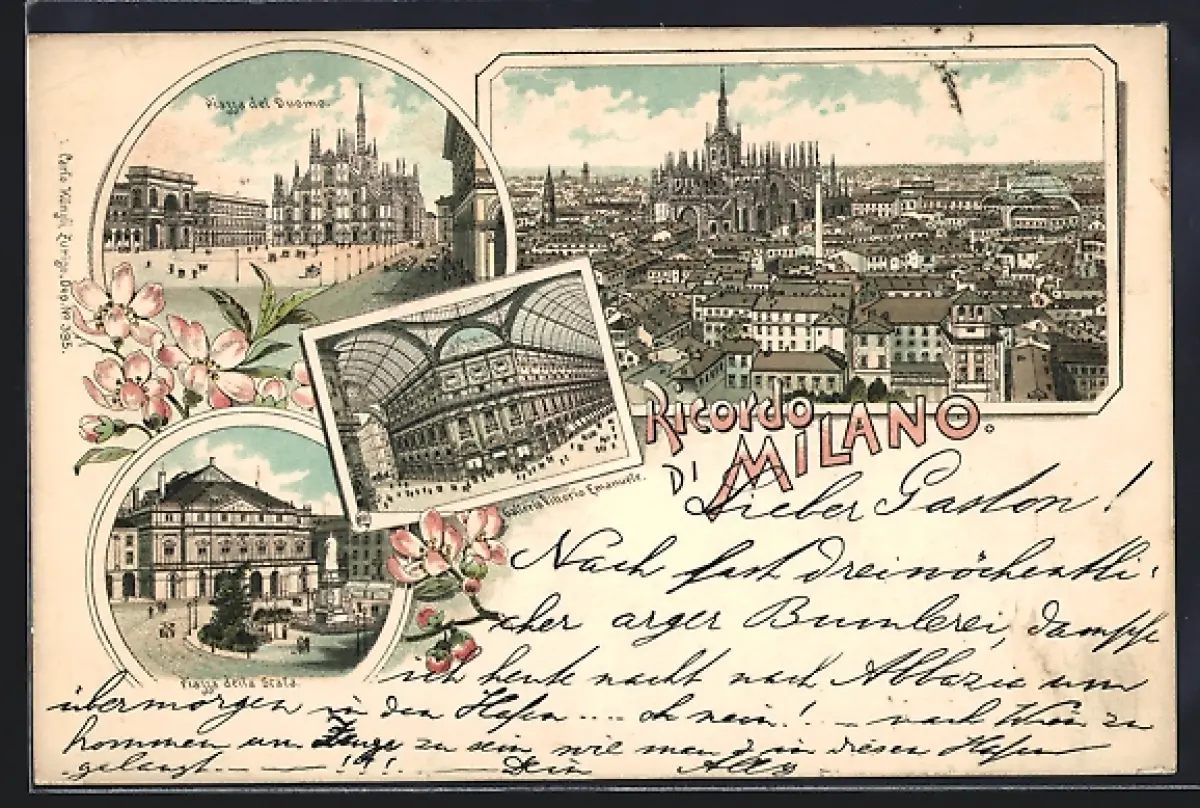 Piazza del Duomo.
Carlo Künzli, Zurigo. Dep. Nr 395.
Galleria Vittorio Emanuele.
Piazza della Scala.
RICORDO
DI MILANO.
Lieber Gaston!
Nach fast dreiwöchentli-
cher arger Bumlerei, dampfe
ich heute nacht nach Abbazia um
übermorgen in den Hafen .... oh nein! – nach Wien zu
kommen um Zeuge zu sein, wie man in diesen Hafen
gelangt. — — !!! — Dein Alex